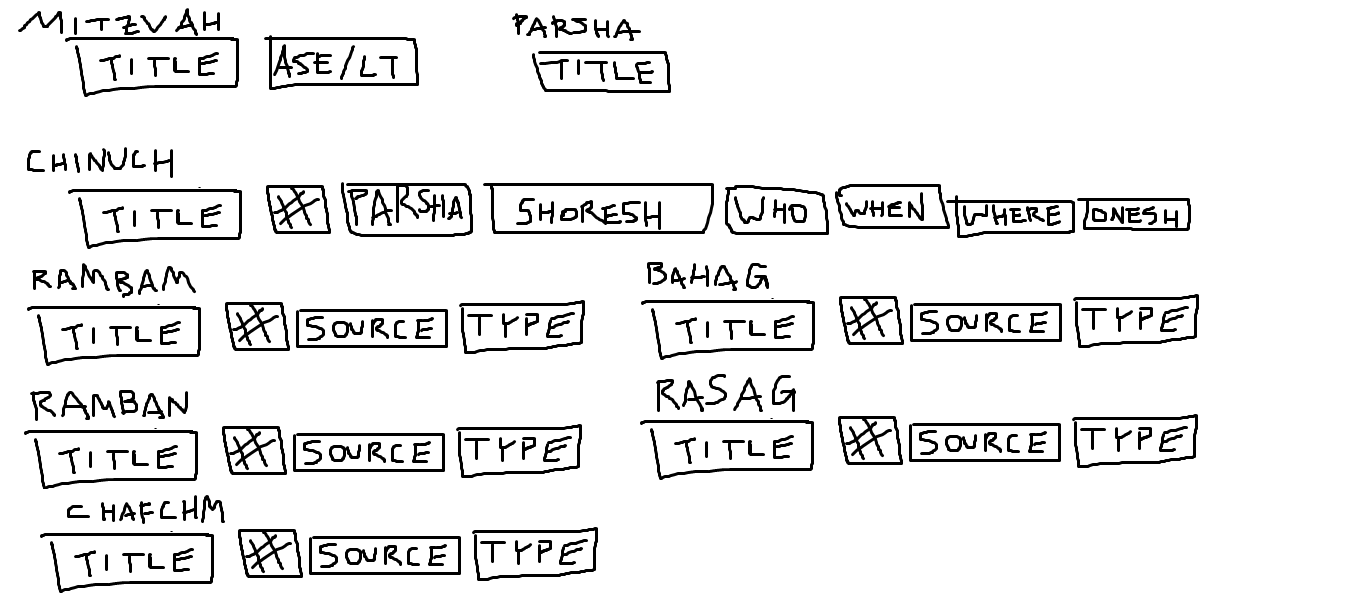 MITZVAH PARSHA
TITLE ASE/LT TITLE
CHINUCH
TITLE # PARSHA SHORESH WHO WHEN WHERE ONESH
RAMBAM BAHAG
TITLE # SOURCE TYPE TITLE # SOURCE TYPE
RAMBAN RASAG
TITLE # SOURCE TYPE TITLE # SOURCE TYPE
CHAFCHM
TITLE # SOURCE TYPE